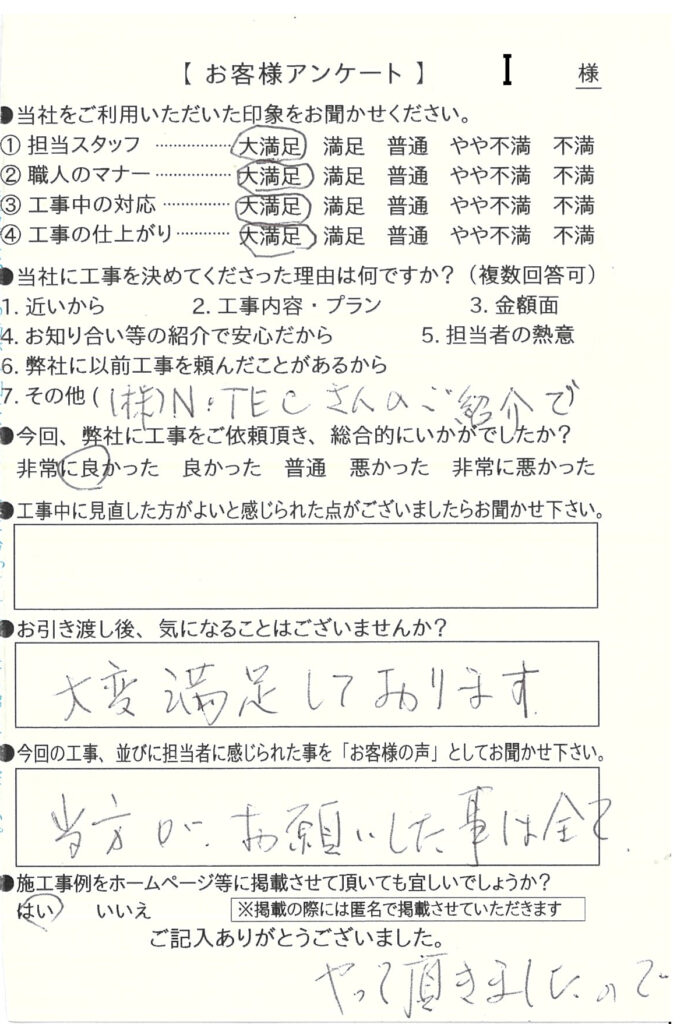 【 お客様アンケート 】 I 様
●当社をご利用いただいた印象をお聞かせください。
① 担当スタッフ ………… 大満足 満足 普通 やや不満 不満
② 職人のマナー ………… 大満足 満足 普通 やや不満 不満
③ 工事中の対応 ………… 大満足 満足 普通 やや不満 不満
④ 工事の仕上がり ……… 大満足 満足 普通 やや不満 不満
●当社に工事を決めてくださった理由は何ですか？（複数回答可）
1. 近いから 2. 工事内容・プラン 3. 金額面
4. お知り合い等の紹介で安心だから 5. 担当者の熱意
6. 弊社に以前工事を頼んだことがあるから
7. その他 ( (株)N・TECさんのご紹介で
●今回、弊社に工事をご依頼頂き、総合的にいかがでしたか？
非常に良かった 良かった 普通 悪かった 非常に悪かった
●工事中に見直した方がよいと感じられた点がございましたらお聞かせ下さい。
●お引き渡し後、気になることはございませんか？
大変満足しております
●今回の工事、並びに担当者に感じられた事を「お客様の声」としてお聞かせ下さい。
当方が、お願いした事は全て
●施工事例をホームページ等に掲載させて頂いても宜しいでしょうか？
はい いいえ ※掲載の際には匿名で掲載させていただきます
ご記入ありがとうございました。
やって頂きましたので